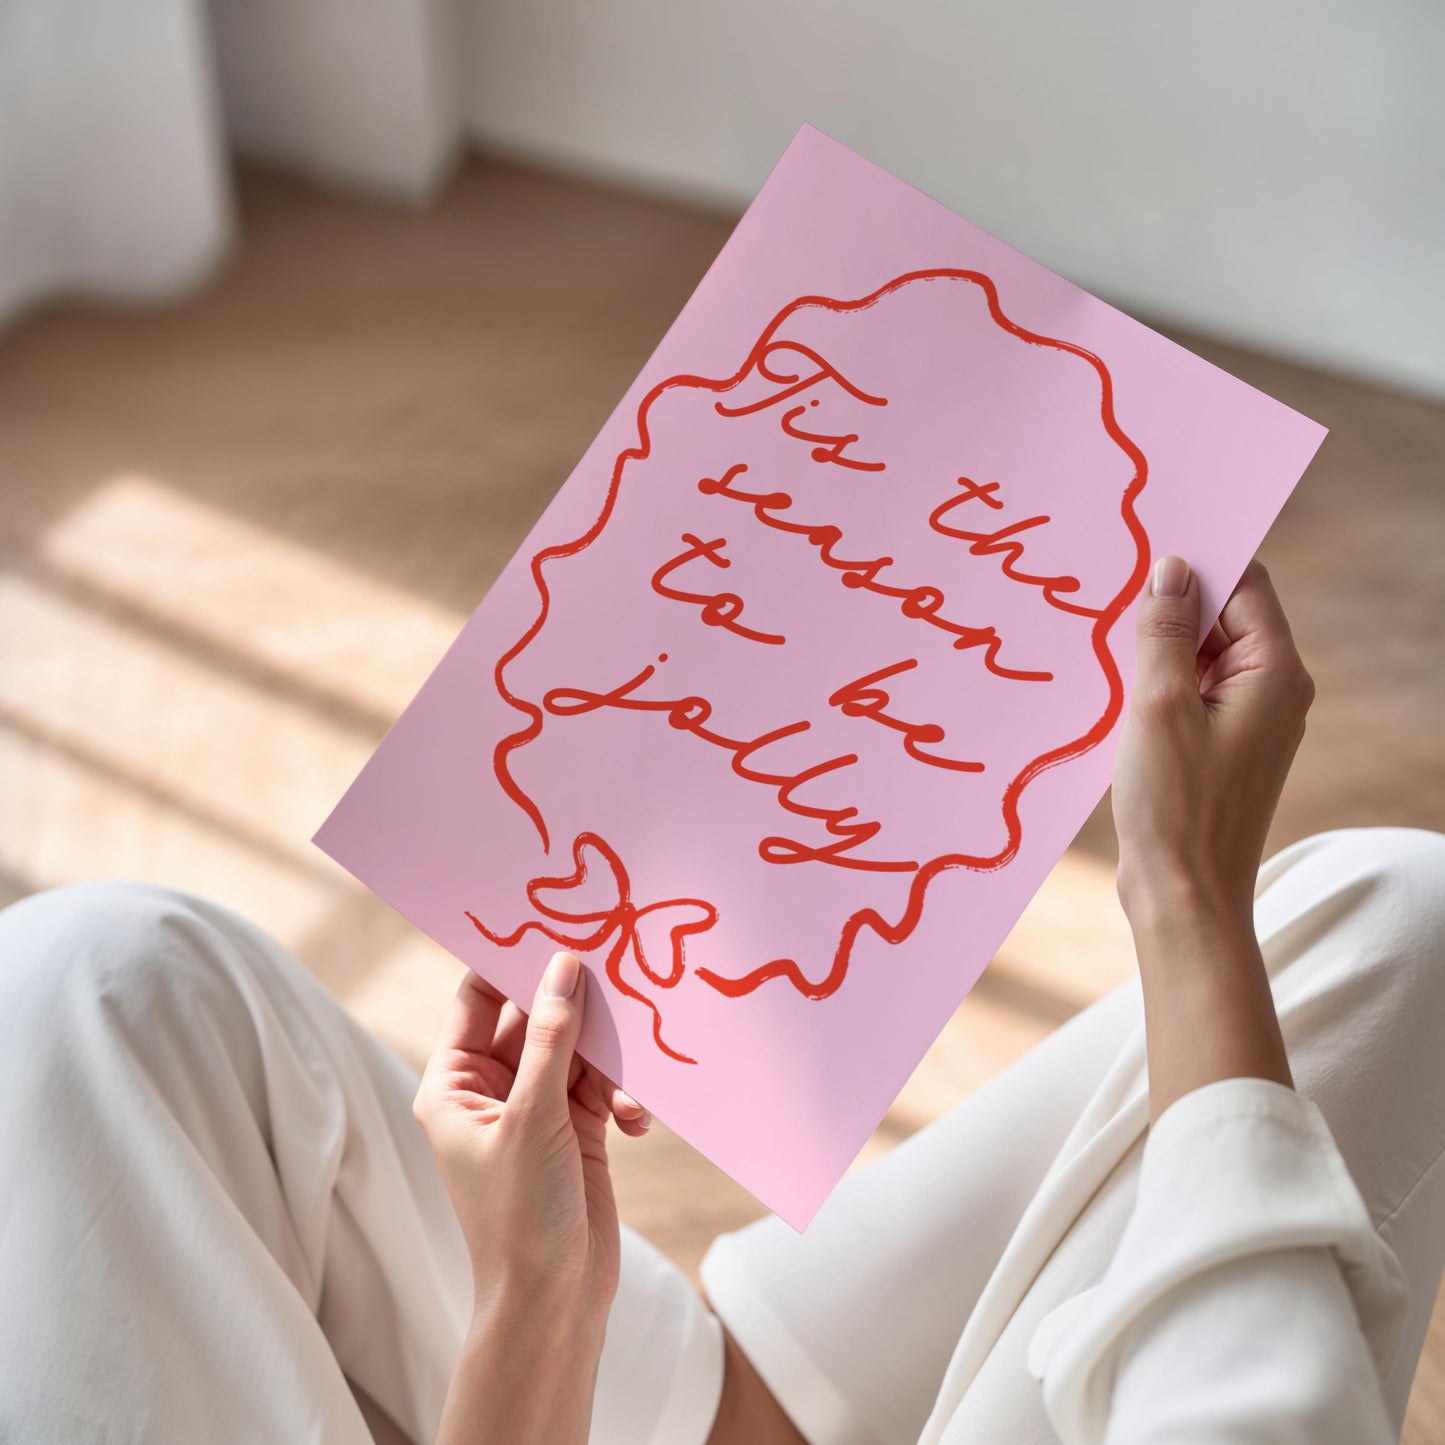 Tis the
season
to be
jolly